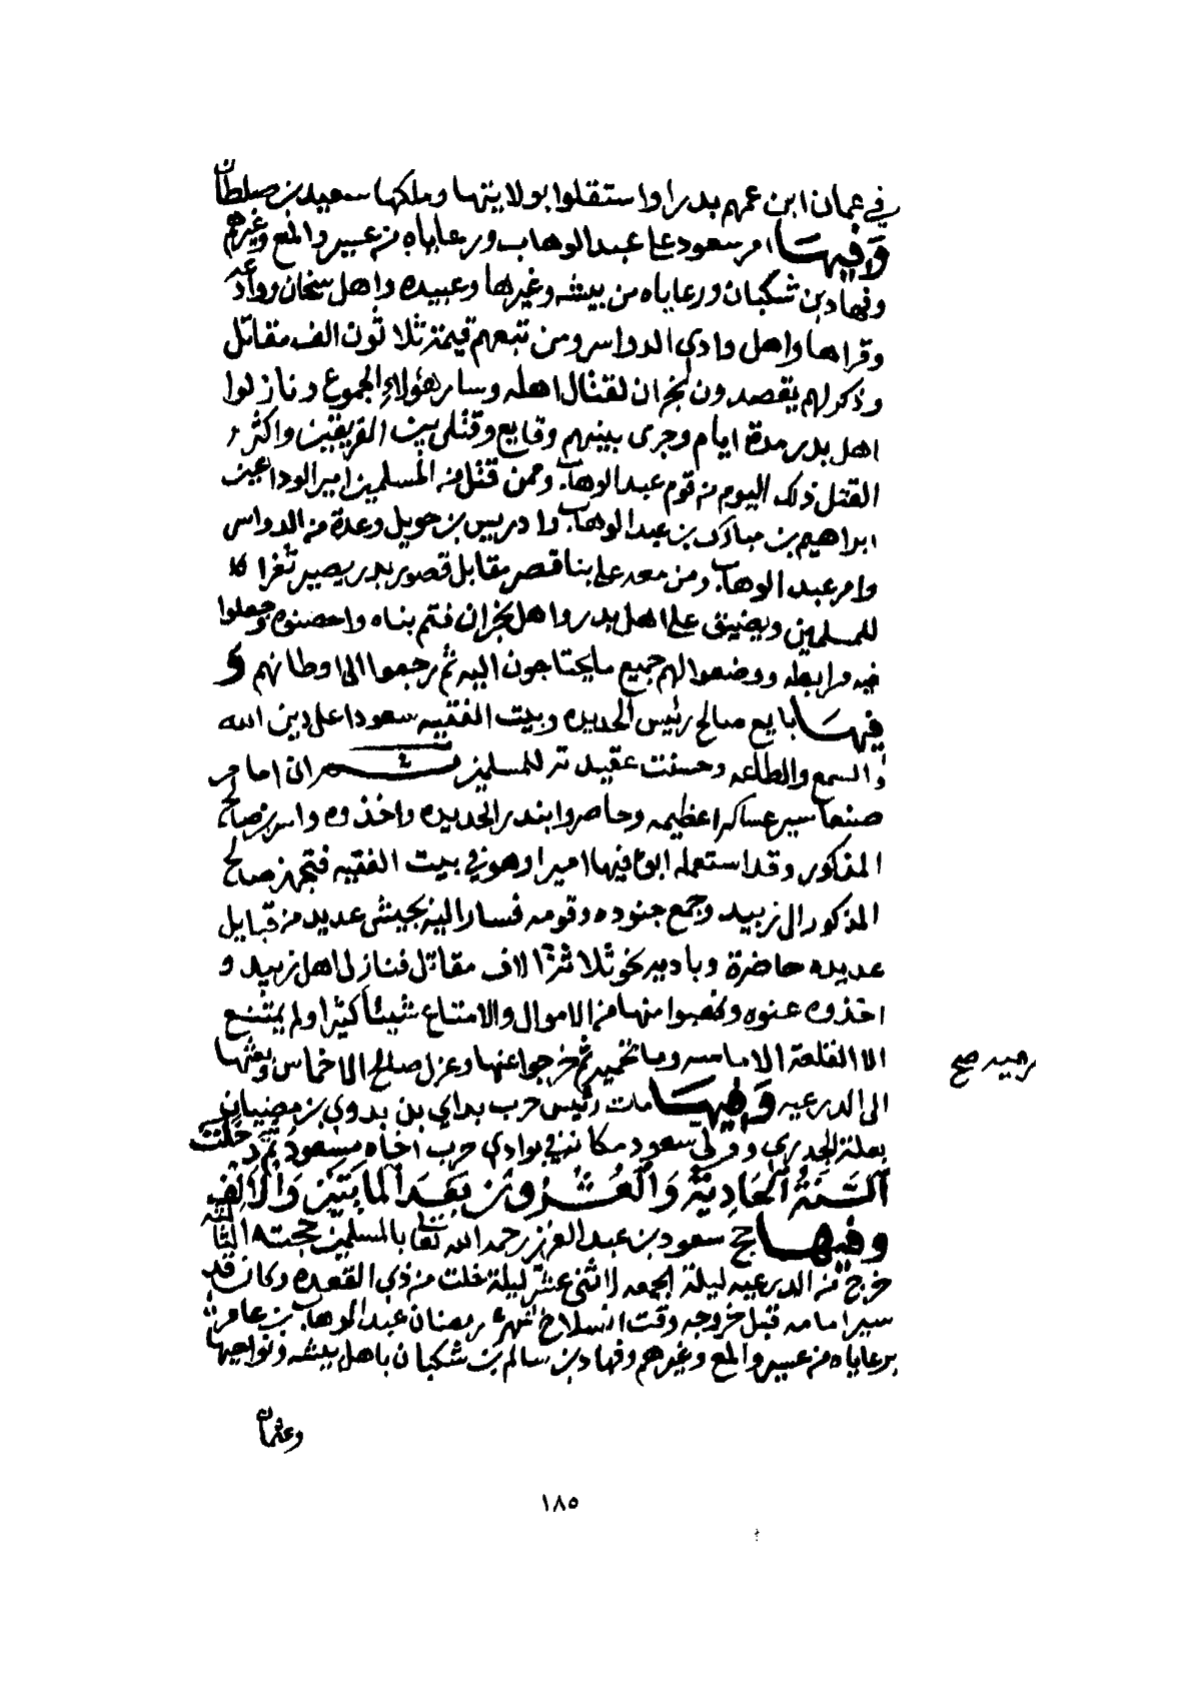 في عمان ابن عمهم بدرا واستقلوا بولايتها وملكها سعيد بن سلطان
وفيها امر سعود على عبد الوهاب ورعاياه من عسير والمع وغيرهم
وفهاد بن شكبان ورعاياه من بيشه وغيرها وعبيده واهل سنحان ووادعه
وقراها واهل وادي الدواسر ومن تبعهم قيمة ثلاثون الف مقاتل
وذكر لهم يقصدون نجران لقتال اهله وسار هؤلاء الجموع ونازلوا
اهل بدر مدة ايام وجرى بينهم وقايع وقتلى بين الفريقين واكثر
القتل ذلك اليوم من قوم عبد الوهاب وممن قتل من المسلمين امير الوداعين
ابراهيم بن مبارك بن عبد الوهاب وادريس بن حويل وعدة من الدواسر
وامر عبد الوهاب ومن معه على بنا قصر مقابل قصور بدر يصير ثغرا
للمسلمين ويضيق على اهل بدر واهل نجران فتم بناه واحصنوه وجعلوا
فيه مرابطه ووضعوا لهم جميع ما يحتاجون اليه ثم رجعوا الى اوطانهم و
فيها بايع صالح رئيس الحديده وبيت الفقيه سعودا على دين الله
والسمع والطاعه وحسنت عقيدته للمسلمين ثم ان امام
صنعا سير عساكرا عظيمه وحاصروا بندر الحديده واخذوه واسر بن صالح
المذكور وقد استعمله ابوه فيها اميرا وهو في بيت الفقيه فتجهز صالح
المذكور الى زبيد وجمع جنوده وقومه فسار اليه بجيش عديد من قبايل
عديده حاضرة وباديه نحو ثلاثة الاف مقاتل فنازل اهل زبيد و
اخذوه عنوه ونهبوا منها من الاموال والامتاع شيئا كثيرا ولم يمتنع
الا القلعة الاماميه وما تحميه ثم خرجوا عنها وعزل صالح الاخماس وبعثها
زبيد صح
الى الدرعيه وفيها مات رئيس حرب بداي بن بدوي بن مضيان
بعلة الجدري وولى سعود مكانه في بوادي حرب اخاه مسعود ثم دخلت
السنة الحادية والعشرون بعد المايتين والالف
وفيها حج سعود بن عبد العزيز رحمه الله تعالى بالمسلمين حجته الثالثه
خرج من الدرعيه ليلة الجمعه لاثنى عشر ليلة خلت من ذي القعده وكان قد
سير امامه قبل خروجه وقت انسلاخ شهر رمضان عبد الوهاب بن عامر
برعاياه من عسير والمع وغيرهم وفهاد بن سالم بن شكبان باهل بيشه ونواحيها
وعثمان
١٨٥